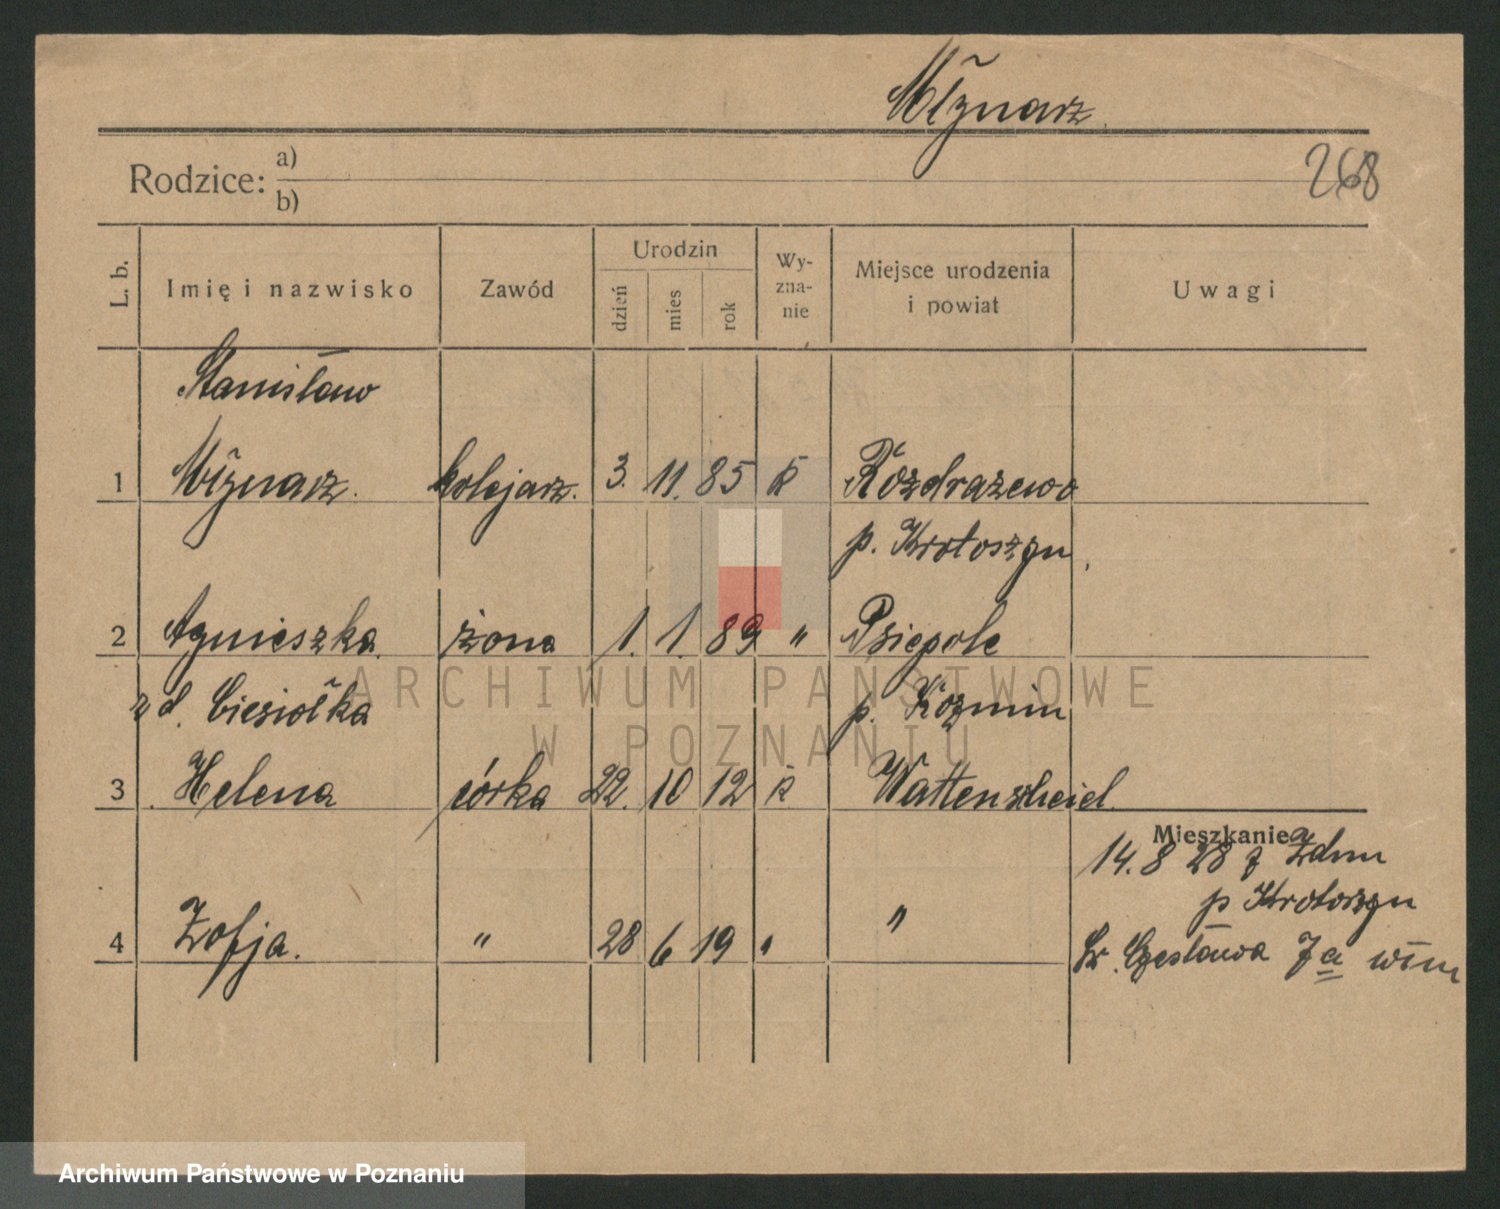 Młynarz
Rodzice: a)
b)
268
L. b. Imię i nazwisko Zawód Urodzin dzień mies rok Wy-zna-nie Miejsce urodzenia i powiat Uwagi
Stanisław
1 Młynarz. kolejarz. 3. 11. 85 K Rozdrażewo
p. Krotoszyn
2 Agnieszka żona 1. 1. 89 " Psiepole
z d. Ciesiołka p. Koźmin
3 Helena córka 22. 10 12 k Wattenscheid
Mieszkanie
14. 8 28 z Zdun
p Krotoszyn
4 Zofja. " 28 6 19 " "
Św. Czesława 7a
ARCHIWUM PAŃSTWOWE
W POZNANIU
Archiwum Państwowe w Poznaniu